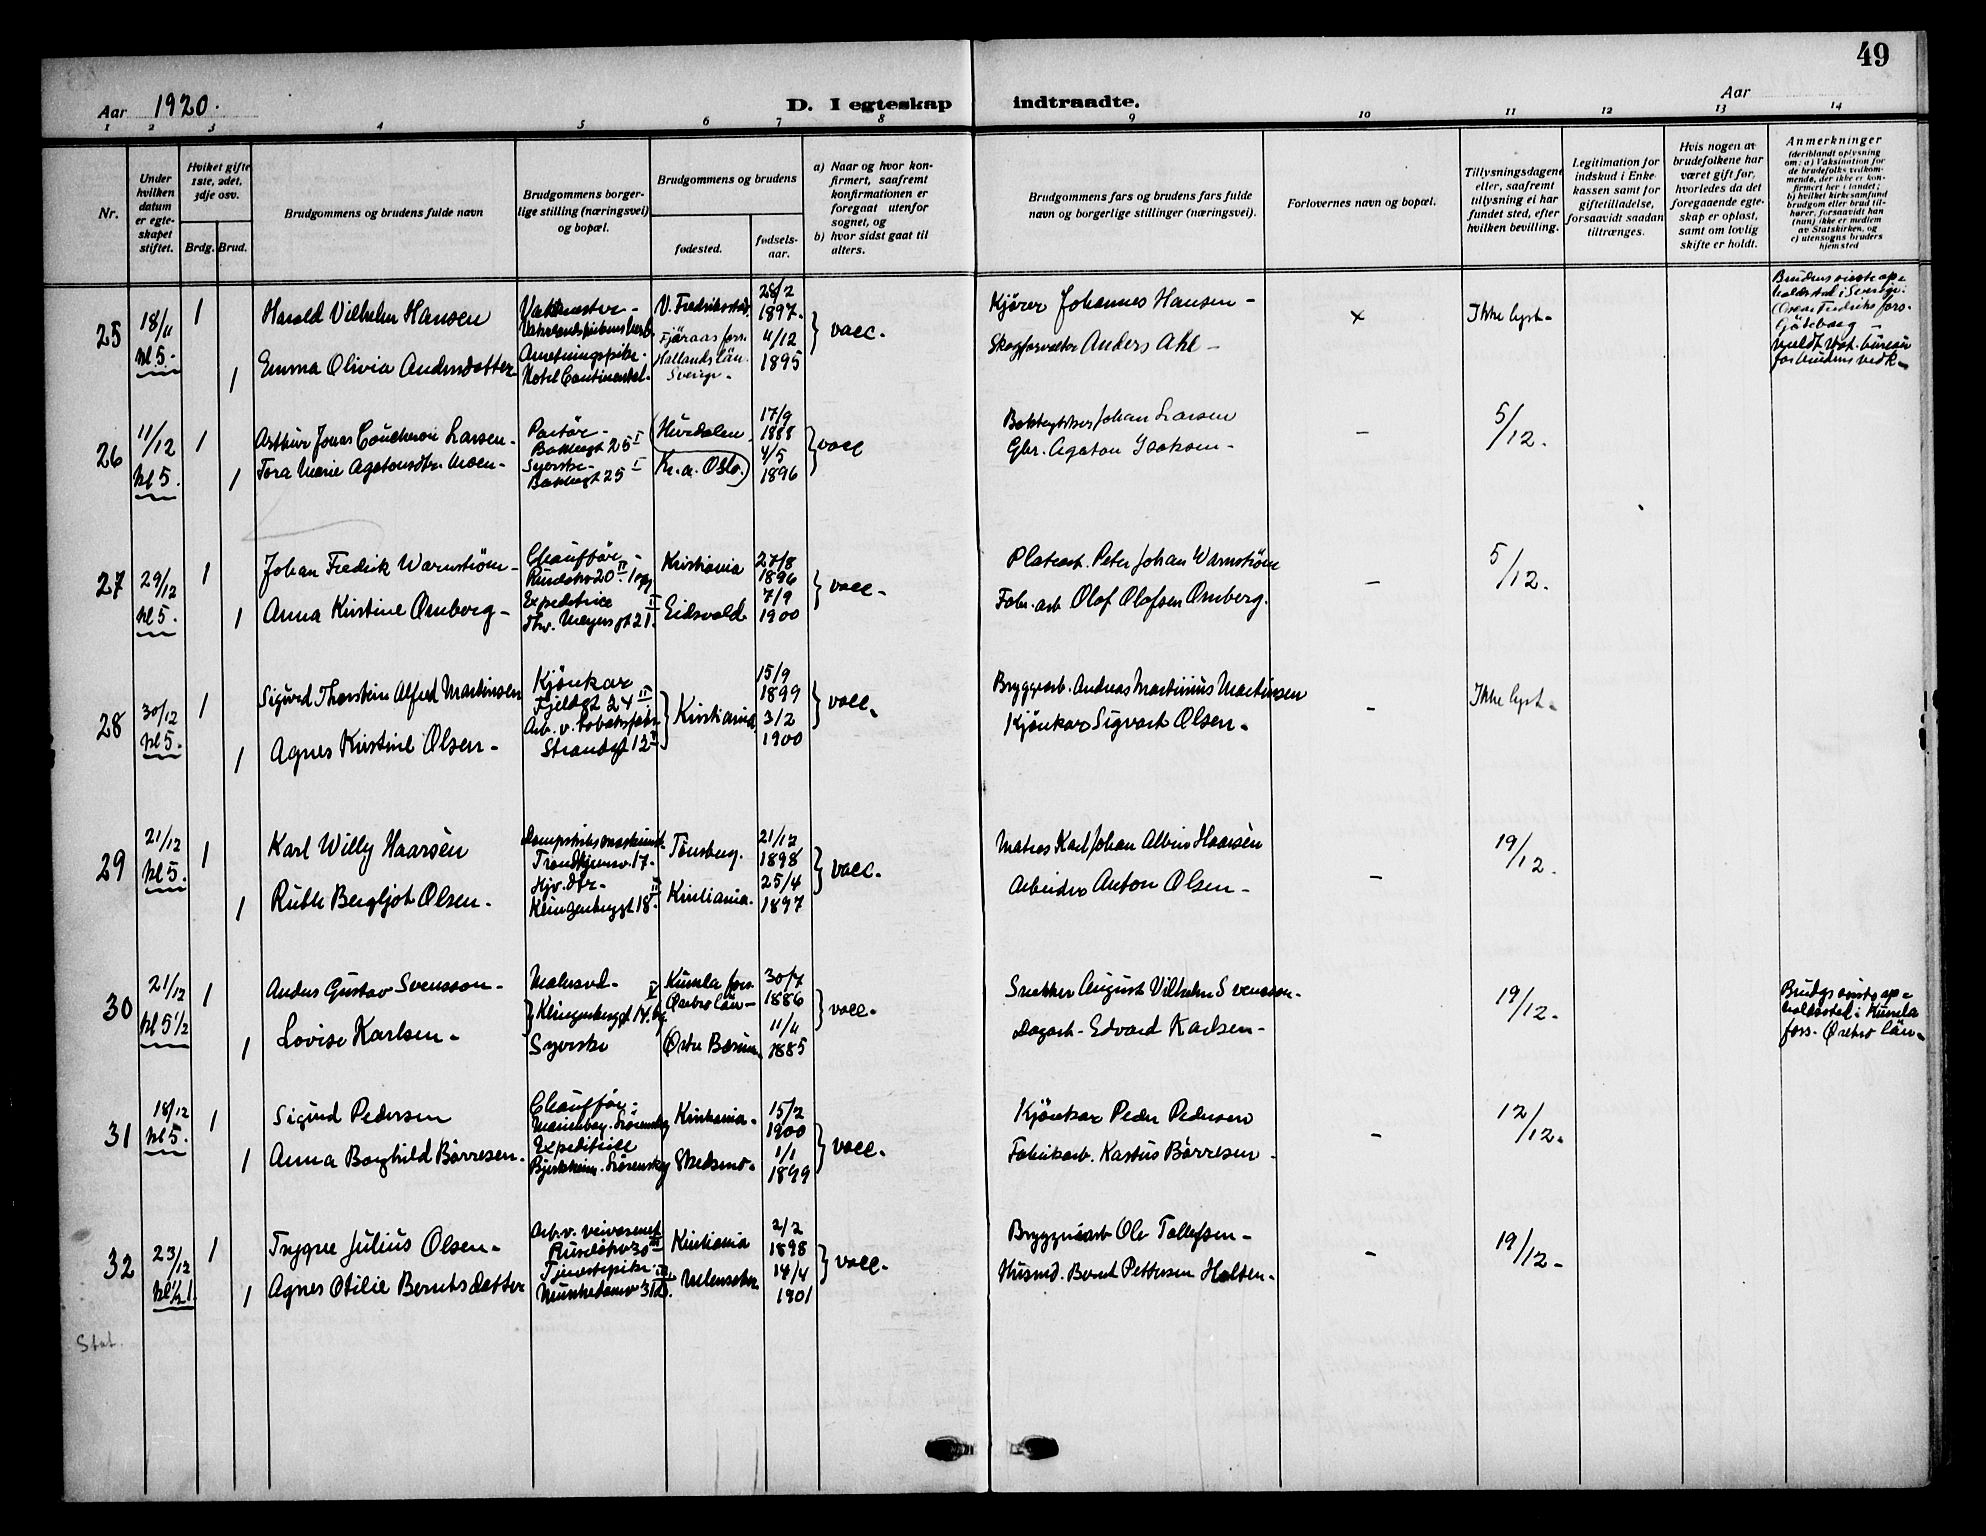 49
Aar 1920.
D. I egteskap indtraadte.
Aar
1 2 3 4 5 6 7 8 9 10 11 12 13 14
Nr.
Under hvilken datum er egteskapet stiftet.
Hviket gifte 1ste, 2det, 3dje osv.
Brdg. Brud.
Brudgommens og brudens fulde navn
Brudgommens borgerlige stilling (næringsvei) og bopæl.
Brudgommens og brudens
fødested.
fødselsaar.
a) Naar og hvor konfirmert, saafremt konfirmationen er foregaat utenfor sognet, og
b) hvor sidst gaat til alters.
Brudgommens fars og brudens fars fulde navn og borgerlige stillinger (næringsvei).
Forlovernes navn og bopæl.
Tillysningsdagene eller, saafremt tillysning ei har fundet sted, efter hvilken bevilling.
Legitimation for indskud i Enkekassen samt for giftetilladelse, forsaavidt saadan tiltrænges.
Hvis nogen av brudefolkene har været gift før, hvorledes da det foregaaende egteskap er opløst, samt om lovlig skifte er holdt.
Anmerkninger (deriblandt oplysning om: a) Vaksination for de brudefolks vedkommende, der ikke er konfirmert her i landet; b) hvilket kirkesamfund brudgom eller brud tilhører, forsaavidt han (hun) ikke er medlem av Statskirken, og c) utensogns bruders hjemsted
25 18/11 kl 5. 1
Harald Vilhelm Hansen
Vaktmester -
V. Fredrikstad
28/2 1897.
vacc.
Kjører Johannes Hansen -
x
Ikke lyst -
1
Emma Olivia Andersdotter
Anretningspike -
Hotel Continental.
Fjäraas førs. Hallands län. Sverige -
4/12 1895
Skogforvalter Anders Ahl -
26 11/12 kl 5. 1
Arthur Jonas Coucheron Larsen -
Hurdalen
17/9 1888
vacc
Johan Larsen
-
5/12.
1
Tora Marie Agatonsdtr. Moen -
Syerske -
Kr.a. Oslo.
4/5 1896
Gbr. Agaton Isaksen -
27 29/12 kl 5. 1
Johan Fredrik Warnstrøm -
Chauffør -
Kristiania
27/8 1896
vacc -
Platearb. Peter Johan Warnstrøm
-
5/12.
1
Anna Kristine Ørnberg -
Expeditrice
Thv. Meyers gt 21.
Eidsvold
7/9 1900
Fabr. arb Olof Olofsen Ørnberg.
28 30/12 kl 5. 1
Sigurd Thorstein Alfred Martinsen
Kjørekar
Kristiania
15/9 1899
vacc.
Bryggearb. Andreas Martinius Martinsen
-
Ikke lyst -
1
Agnes Kristine Olsen -
Arb. v. tobaksfabr
Strandgt 12
3/2 1900
Kjørekar Sigvart Olsen -
29 21/12 kl 5. 1
Karl Willy Haarsèn
Trondhjemsv 17.
Tønsberg.
21/12 1898
vacc.
Matros Karl Johan Albin Haarsèn
-
19/12.
1
Ruth Bergljot Olsen.
Hjv. dtr -
Klingenberggt 18
Kristiania.
25/4 1897
Arbeider Anton Olsen -
30 21/12 kl 5 1/2 1
Anders Gustav Svensson -
Malersv. -
Kumla førs. Ørebro län -
30/7 1886
vacc.
Snekker August Vilhelm Svensson -
19/12.
Brudgs sidste opholdssted i Kumla førs. Ørebro län.
1
Lovise Karlsen -
Syerske
Østre Bærum
11/11 1885
Dagarb - Edvard Karlsen -
31 18/12 kl 5. 1
Sigurd Pedersen
Chauffør -
Kristiania.
15/2 1900
vacc.
Kjørekar Peder Pedersen
-
12/12.
1
Anna Borghild Børresen.
Expeditrice
Skedsmo.
1/1 1899
Fabrikarb. Kastus Børresen -
32 23/12 kl 1/2 1. 1
Trygve Julius Olsen -
Arb. v. veivesenet
Ruseløkv 30 III
Kristiania
2/2 1898
vacc.
Bryggeriarb Ole Tollefsen -
-
19/12 -
1
Agnes Otilie Berntsdatter
Tjenestepike.
Munkedamsv 31
14/4 1901
Husmd. Bernt Pettersen Holten.
Stat.